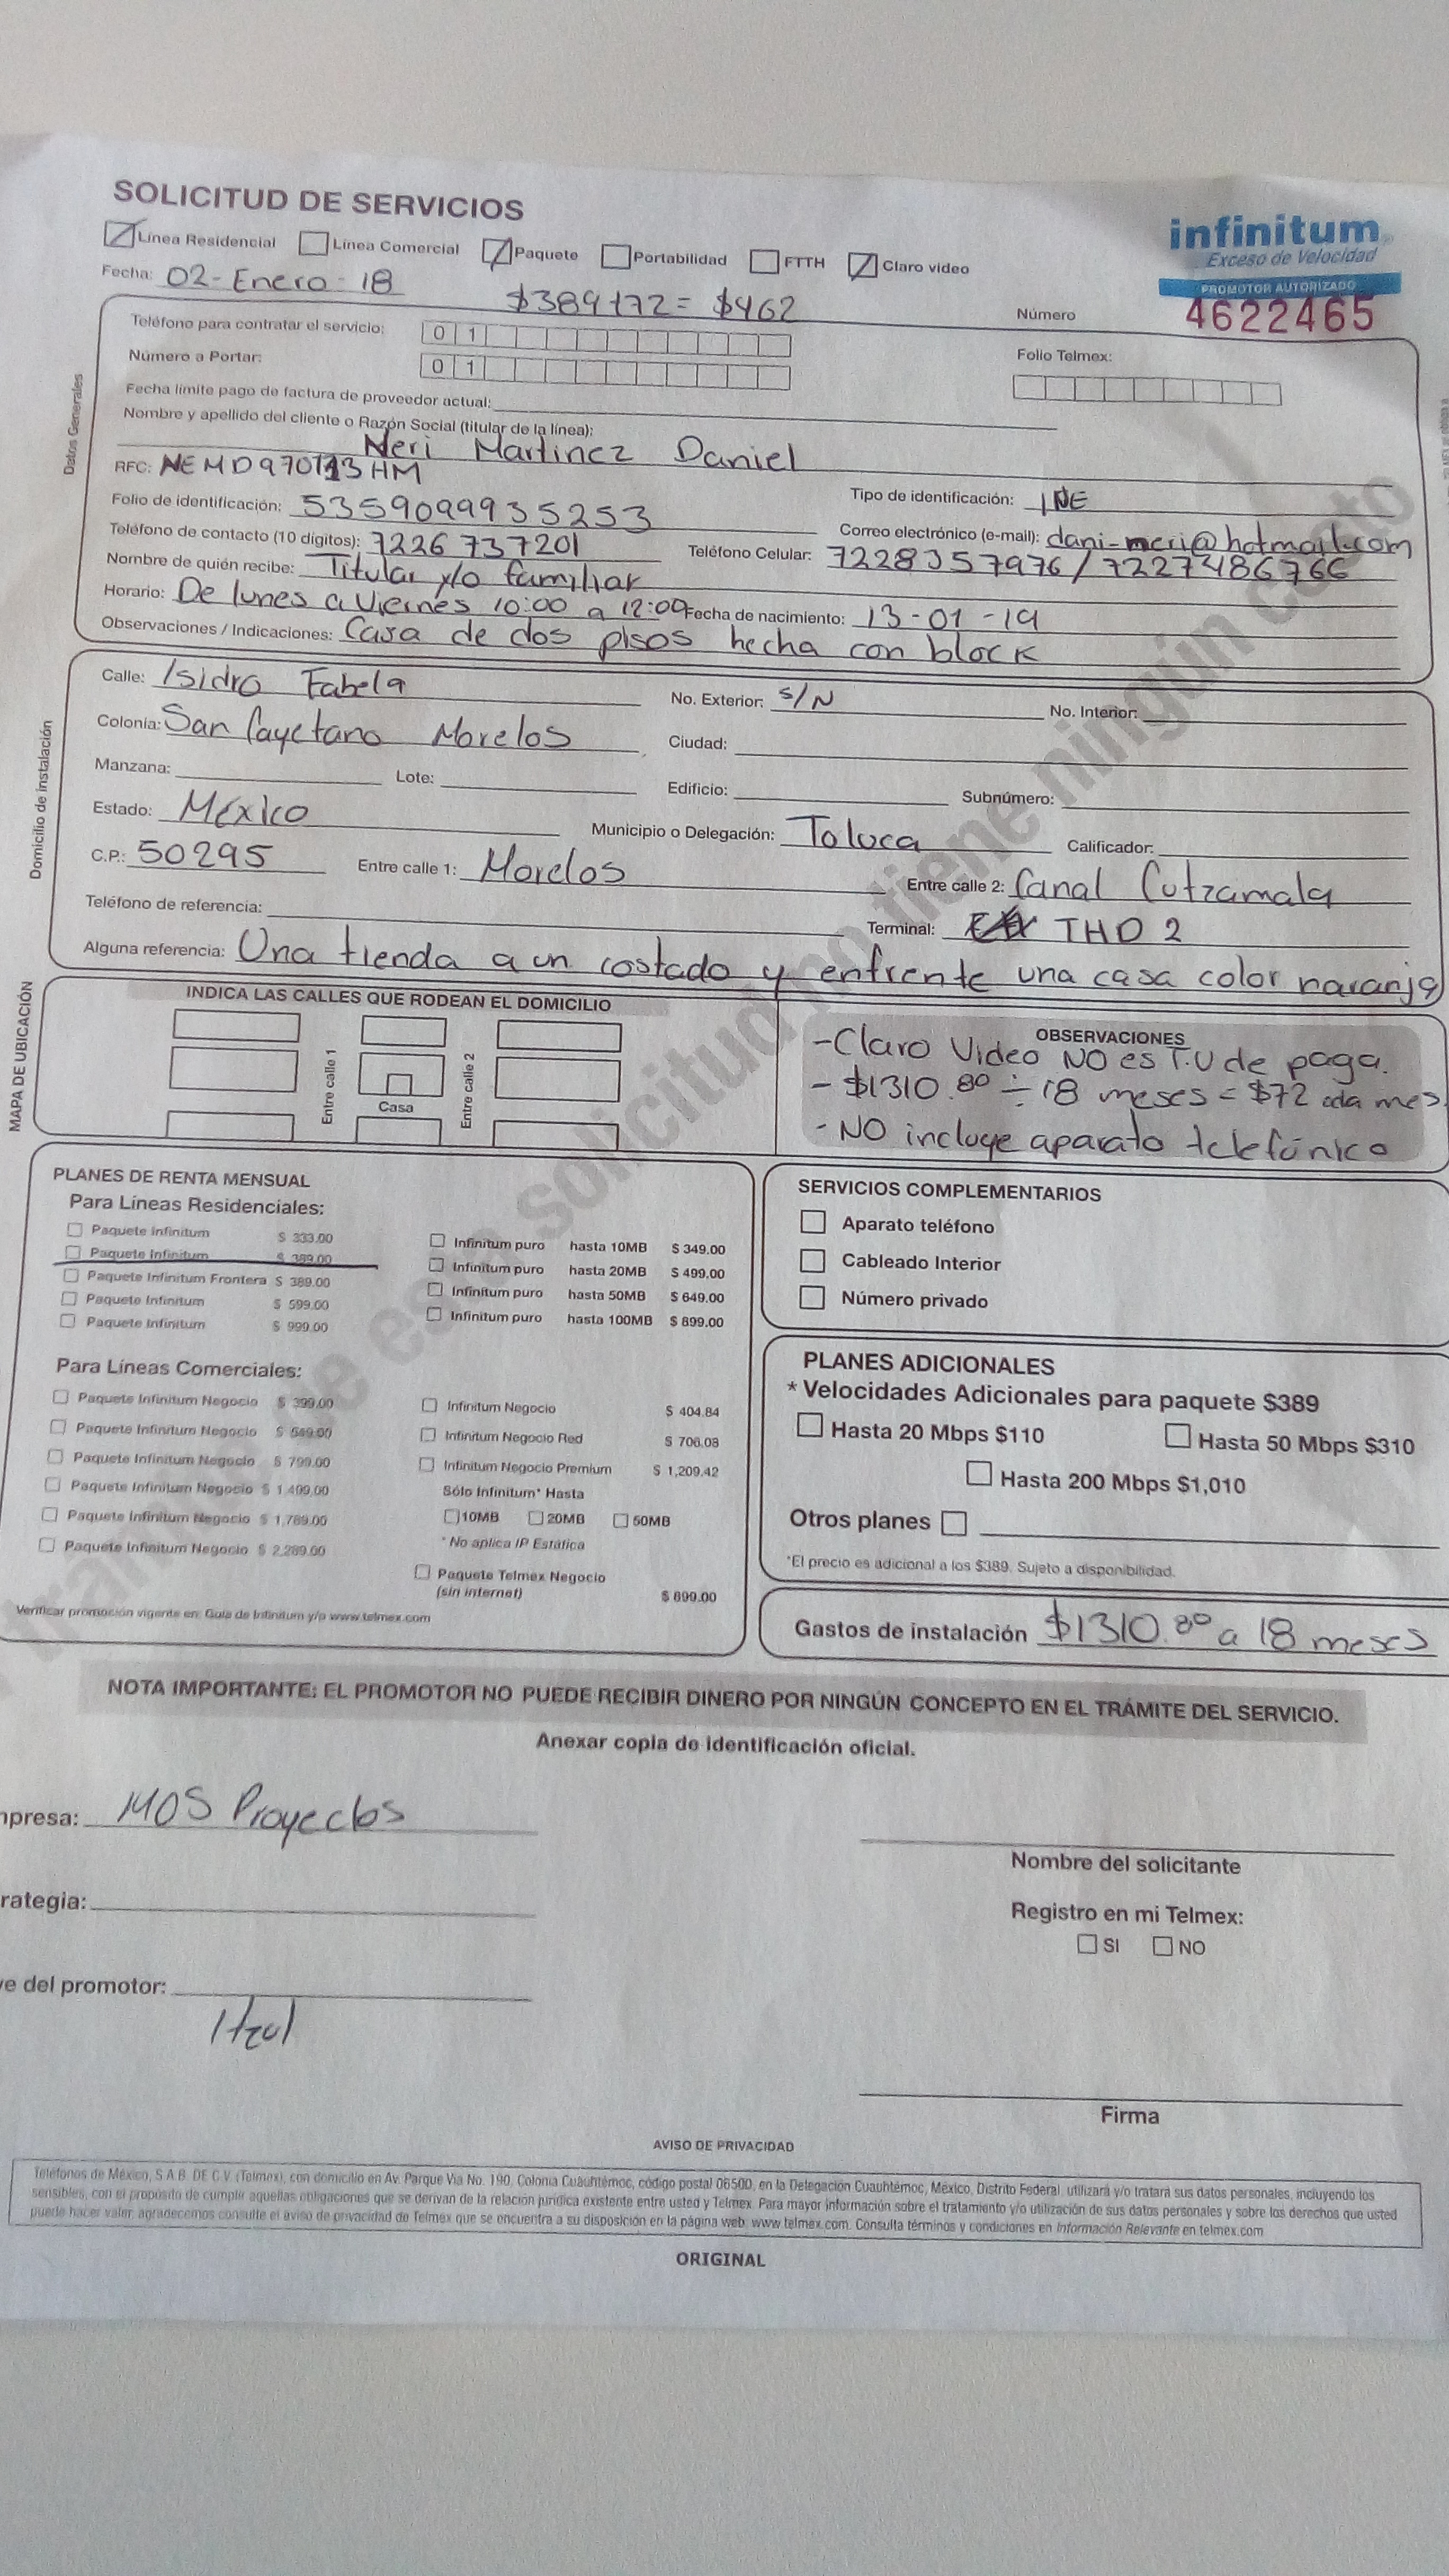 SOLICITUD DE SERVICIOS
Línea Residencial Línea Comercial Paquete Portabilidad FTTH Claro video
infinitum
Exceso de Velocidad
PROMOTOR AUTORIZADO
Fecha: 02-Enero-18
$389+72= $462
Número 4622465
Teléfono para contratar el servicio: 0 1
Número a Portar: 0 1
Folio Telmex:
Fecha límite pago de factura de proveedor actual:
Nombre y apellido del cliente o Razón Social (titular de la línea):
Neri Martinez Daniel
RFC: NEMD970113HM
Folio de identificación: 5359099935253 Tipo de identificación: INE
Teléfono de contacto (10 dígitos): 7226737201 Correo electrónico (e-mail): dani-meri@hotmail.com
Nombre de quién recibe: Titular y/o familiar Teléfono Celular: 7228357976/7227486766
Horario: De lunes a Viernes 10:00 a 12:00 Fecha de nacimiento: 13-01-19
Observaciones / Indicaciones: Casa de dos pisos hecha con block
Datos Generales
Calle: Isidro Fabela No. Exterior: S/N No. Interior:
Colonia: San Cayetano Morelos Ciudad:
Manzana: Lote: Edificio: Subnúmero:
Estado: México Municipio o Delegación: Toluca Calificador:
C.P.: 50295 Entre calle 1: Morelos Entre calle 2: Canal Cutzamala
Teléfono de referencia: Terminal: THD 2
Alguna referencia: Una tienda a un costado y enfrente una casa color naranja
Domicilio de instalación
MAPA DE UBICACIÓN
INDICA LAS CALLES QUE RODEAN EL DOMICILIO
Entre calle 1
Casa
Entre calle 2
OBSERVACIONES
-Claro Video NO es T.V de paga.
- $1310.80 ÷ 18 meses = $72 cada mes.
- NO incluye aparato telefónico
PLANES DE RENTA MENSUAL
Para Líneas Residenciales:
Paquete Infinitum $ 333.00
Paquete Infinitum $ 389.00
Paquete Infinitum Frontera $ 389.00
Paquete Infinitum $ 599.00
Paquete Infinitum $ 999.00
Infinitum puro hasta 10MB $ 349.00
Infinitum puro hasta 20MB $ 499.00
Infinitum puro hasta 50MB $ 649.00
Infinitum puro hasta 100MB $ 899.00
Para Líneas Comerciales:
Paquete Infinitum Negocio $ 399.00
Paquete Infinitum Negocio $ 549.00
Paquete Infinitum Negocio $ 799.00
Paquete Infinitum Negocio $ 1,499.00
Paquete Infinitum Negocio $ 1,789.00
Paquete Infinitum Negocio $ 2,289.00
Infinitum Negocio $ 404.84
Infinitum Negocio Red $ 706.08
Infinitum Negocio Premium $ 1,209.42
Sólo Infinitum* Hasta
10MB 20MB 50MB
* No aplica IP Estática
Paquete Telmex Negocio
(sin internet) $ 899.00
Verificar promoción vigente en: Guía de Infinitum y/o www.telmex.com
SERVICIOS COMPLEMENTARIOS
Aparato teléfono
Cableado Interior
Número privado
PLANES ADICIONALES
* Velocidades Adicionales para paquete $389
Hasta 20 Mbps $110 Hasta 50 Mbps $310
Hasta 200 Mbps $1,010
Otros planes
*El precio es adicional a los $389. Sujeto a disponibilidad.
Gastos de instalación $1310.80 a 18 meses
NOTA IMPORTANTE: EL PROMOTOR NO PUEDE RECIBIR DINERO POR NINGÚN CONCEPTO EN EL TRÁMITE DEL SERVICIO.
Anexar copia de identificación oficial.
mpresa: MOS Proyectos
Nombre del solicitante
rategia:
Registro en mi Telmex:
SI NO
ve del promotor:
Itzul
Firma
AVISO DE PRIVACIDAD
Teléfonos de México, S.A.B. DE C.V. (Telmex), con domicilio en Av. Parque Vía No. 190, Colonia Cuauhtémoc, código postal 06500, en la Delegación Cuauhtémoc, México, Distrito Federal, utilizará y/o tratará sus datos personales, incluyendo los
sensibles, con el propósito de cumplir aquellas obligaciones que se derivan de la relación jurídica existente entre usted y Telmex. Para mayor información sobre el tratamiento y/o utilización de sus datos personales y sobre los derechos que usted
puede hacer valer, agradecemos consulte el aviso de privacidad de Telmex que se encuentra a su disposición en la página web: www.telmex.com. Consulta términos y condiciones en Información Relevante en telmex.com
ORIGINAL